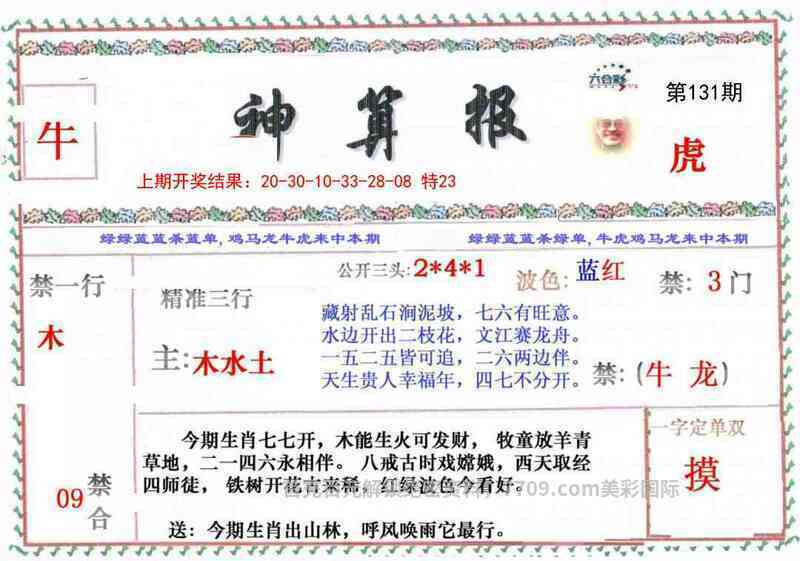 六合彩
第131期
牛
神算报
虎
上期开奖结果：20-30-10-33-28-08 特23
绿绿蓝蓝杀蓝单,鸡马龙牛虎来中本期
绿绿蓝蓝杀绿单,牛虎鸡马龙来中本期
禁一行
木
精准三行
主:木水土
公开三头:2*4*1
波色:蓝红
禁:3门
藏射乱石涧泥坡，七六有旺意。
水边开出二枝花，文江赛龙舟。
一五二五皆可追，二六两边伴。
天生贵人幸福年，四七不分开。
禁:(牛 龙)
09禁合
今期生肖七七开，木能生火可发财， 牧童放羊青
草地，二一四六永相伴。 八戒古时戏嫦娥，西天取经
四师徒， 铁树开花古来稀，红绿波色今看好。
7709.com美彩国际
送：今期生肖出山林，呼风唤雨它最行。
一字定单双
摸